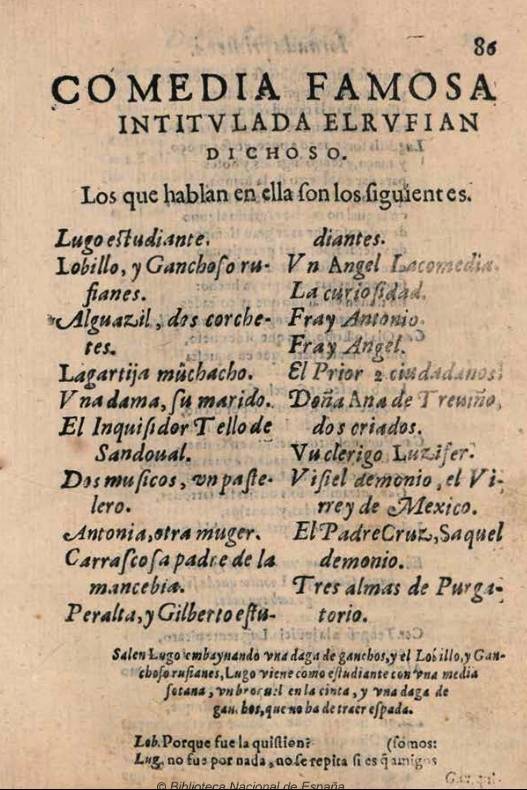 86
COMEDIA FAMOSA
INTITVLADA EL RVFIAN
DICHOSO.
Los que hablan en ella ſon los ſiguientes.
Lugo eſtudiante.
Lobillo, y Ganchoſo ru-
fianes.
Alguazil, dos corche-
tes.
Lagartija muchacho.
Vna dama, ſu marido.
El Inquiſidor Tello de
Sandoual.
Dos muſicos, vn paſte-
lero.
Antonia, otra muger.
Carraſcoſa padre de la
mancebia.
Peralta, y Gilberto eſtu-
diantes.
Vn Angel La comedia.
La curioſidad.
Fray Antonio.
Fray Angel.
El Prior 2 ciudadanos.
Doña Ana de Treuiño,
dos criados.
Vn clerigo Luzifer.
Viſiel demonio, el Vi-
rrey de Mexico.
El Padre Cruz, Saquel
demonio.
Tres almas de Purga-
torio.
Salen Lugo embaynando vna daga de ganchos, y el Lobillo, y Gan-
choſo rufianes, Lugo viene como eſtudiante con vna media
ſotana, vn broquel en la cinta, y vna daga de
ganchos, que no ha de traer eſpada.
Lob. Porque fue la quiſtion? (ſomos:
Lug. no fue por nada, no ſe repita ſi es q̃ amigos
© Biblioteca Nacional de España